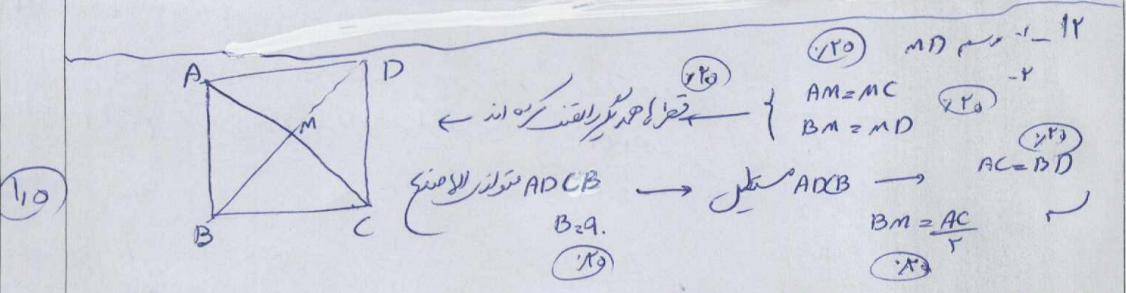 ۱۲_ ۱- رسم MD ۰٫۲۵
۲-
AM=MC
BM=MD ۰٫۲۵
← قطرها همدیگر را نصف کرده اند ← ۰٫۲۵
ADCB متوازی الاضلاع → ADCB مستطیل → AC=BD ۰٫۲۵
B=90 ۰٫۲۵
BM = AC/۲ ۰٫۲۵
A
D
M
B
C
۱٫۵